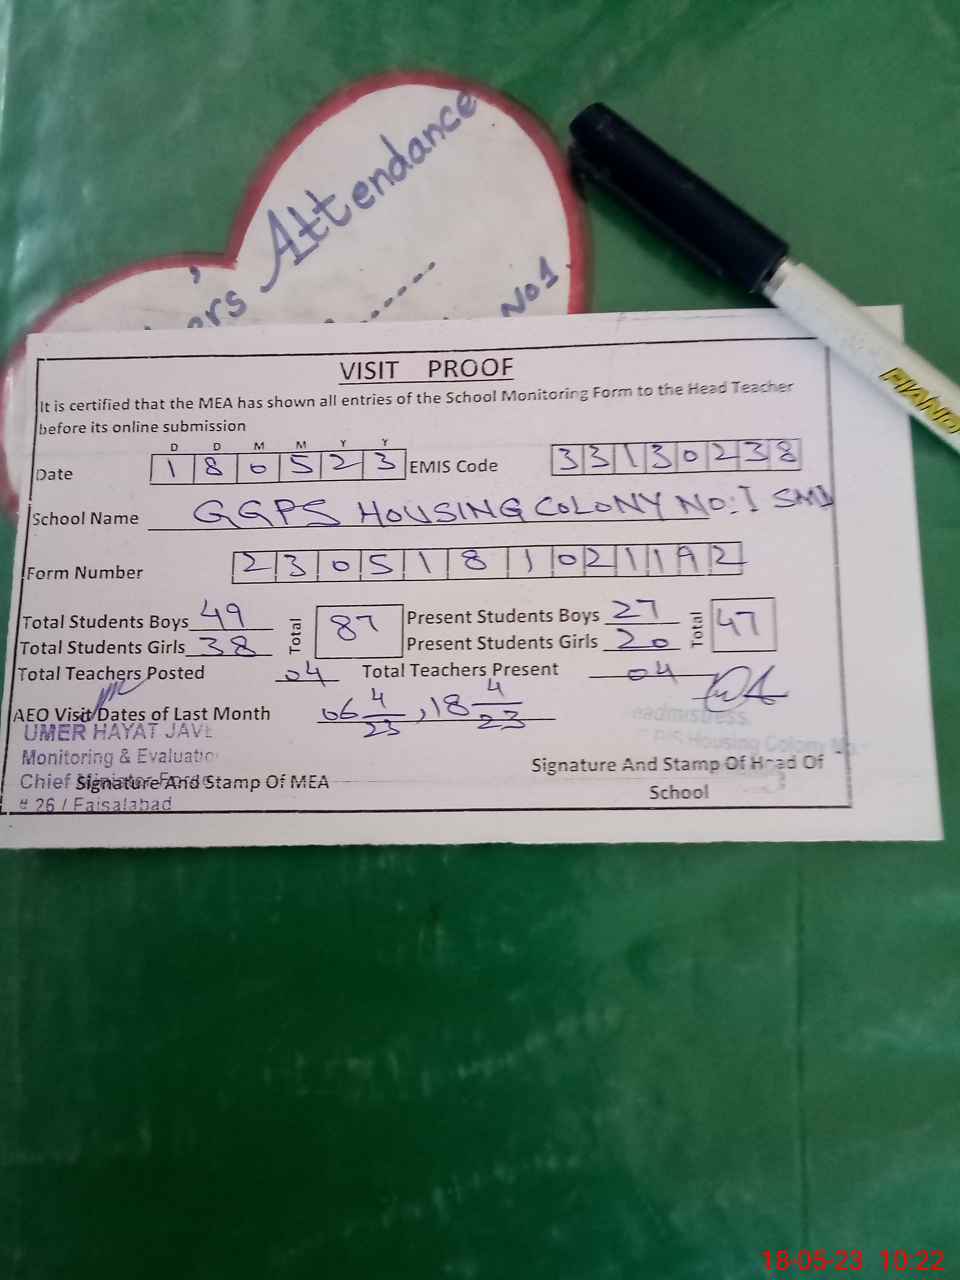 Attendance
No 1
PIANO
VISIT PROOF
It is certified that the MEA has shown all entries of the School Monitoring Form to the Head Teacher
before its online submission
D D M M Y Y
Date 1 8 0 5 2 3 EMIS Code 3 3 1 3 0 2 3 8
School Name GGPS HOUSING COLONY NO: I SMD
Form Number 2 3 0 5 1 8 1 0 2 1 1 A 2
Total Students Boys 49 Total 87 Present Students Boys 27 Total 47
Total Students Girls 38 Present Students Girls 20
Total Teachers Posted 04 Total Teachers Present 04
AEO Visit Dates of Last Month 06 4/23, 18 4/23
UMER HAYAT JAVE
Monitoring & Evaluatio
Chief
# 26 / Faisalabad
Signature And Stamp Of MEA
eadmistress
Housing Colony No
Signature And Stamp Of Head Of
School
18-05-23 10:22